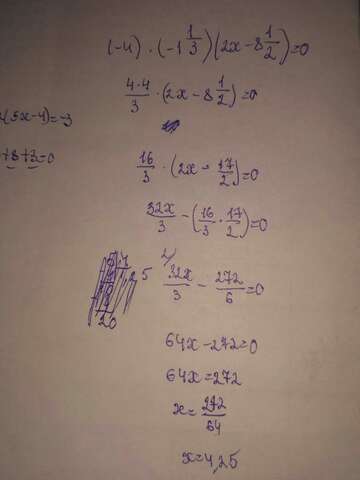 (-4) · (-1 1/3)(2x - 8 1/2) = 0
4·4/3 · (2x - 8 1/2) = 0
(5x-4)=-3
+8+3=0
16/3 · (2x - 17/2) = 0
32x/3 - (16/3 · 17/2) = 0
5
2/ 32x/3 - 272/6 = 0
20
64x - 272 = 0
64x = 272
x = 272/64
x = 4,25